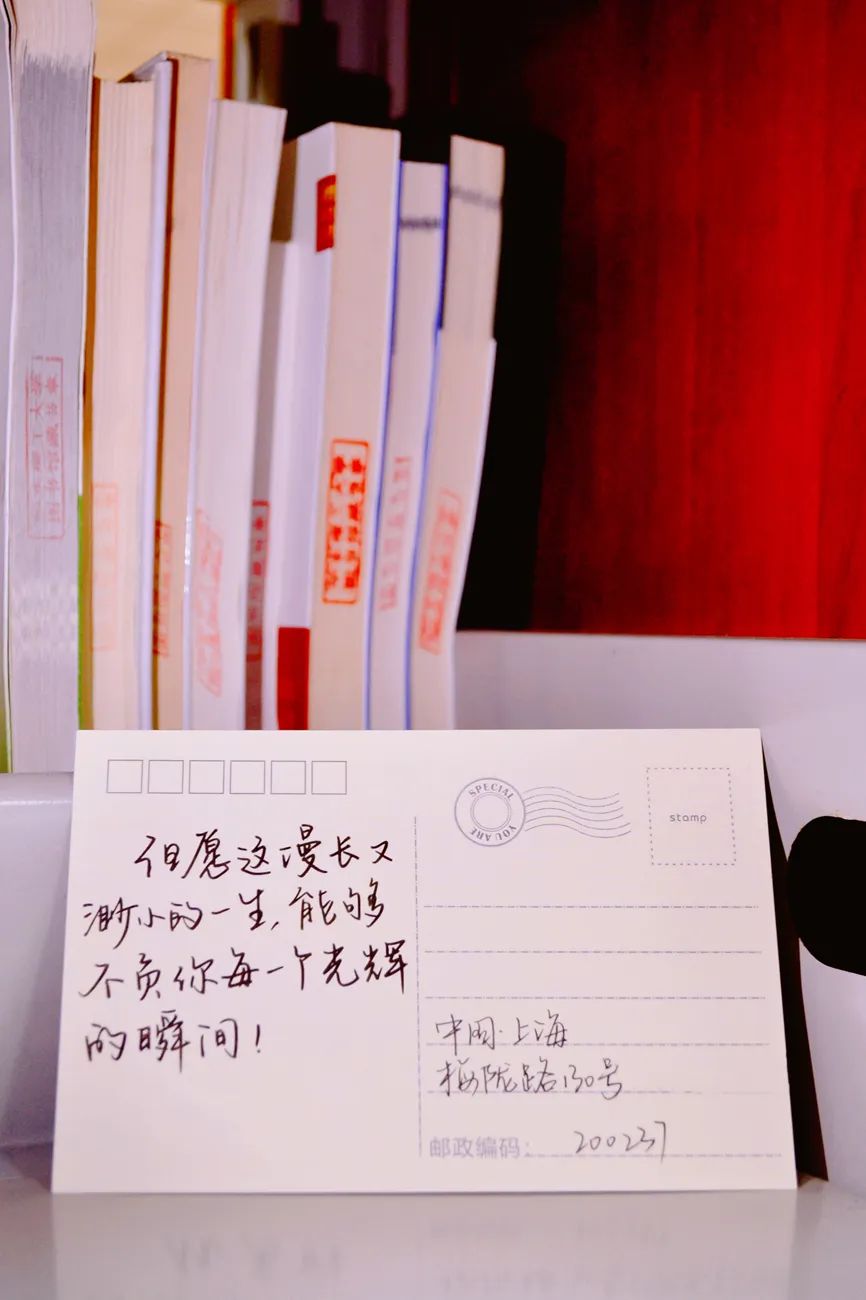 SPECIAL
YOU ARE
stamp
但愿这漫长又
渺小的一生,能够
不负你每一个光辉
的瞬间!
中国·上海
梅陇路130号
邮政编码: 200237